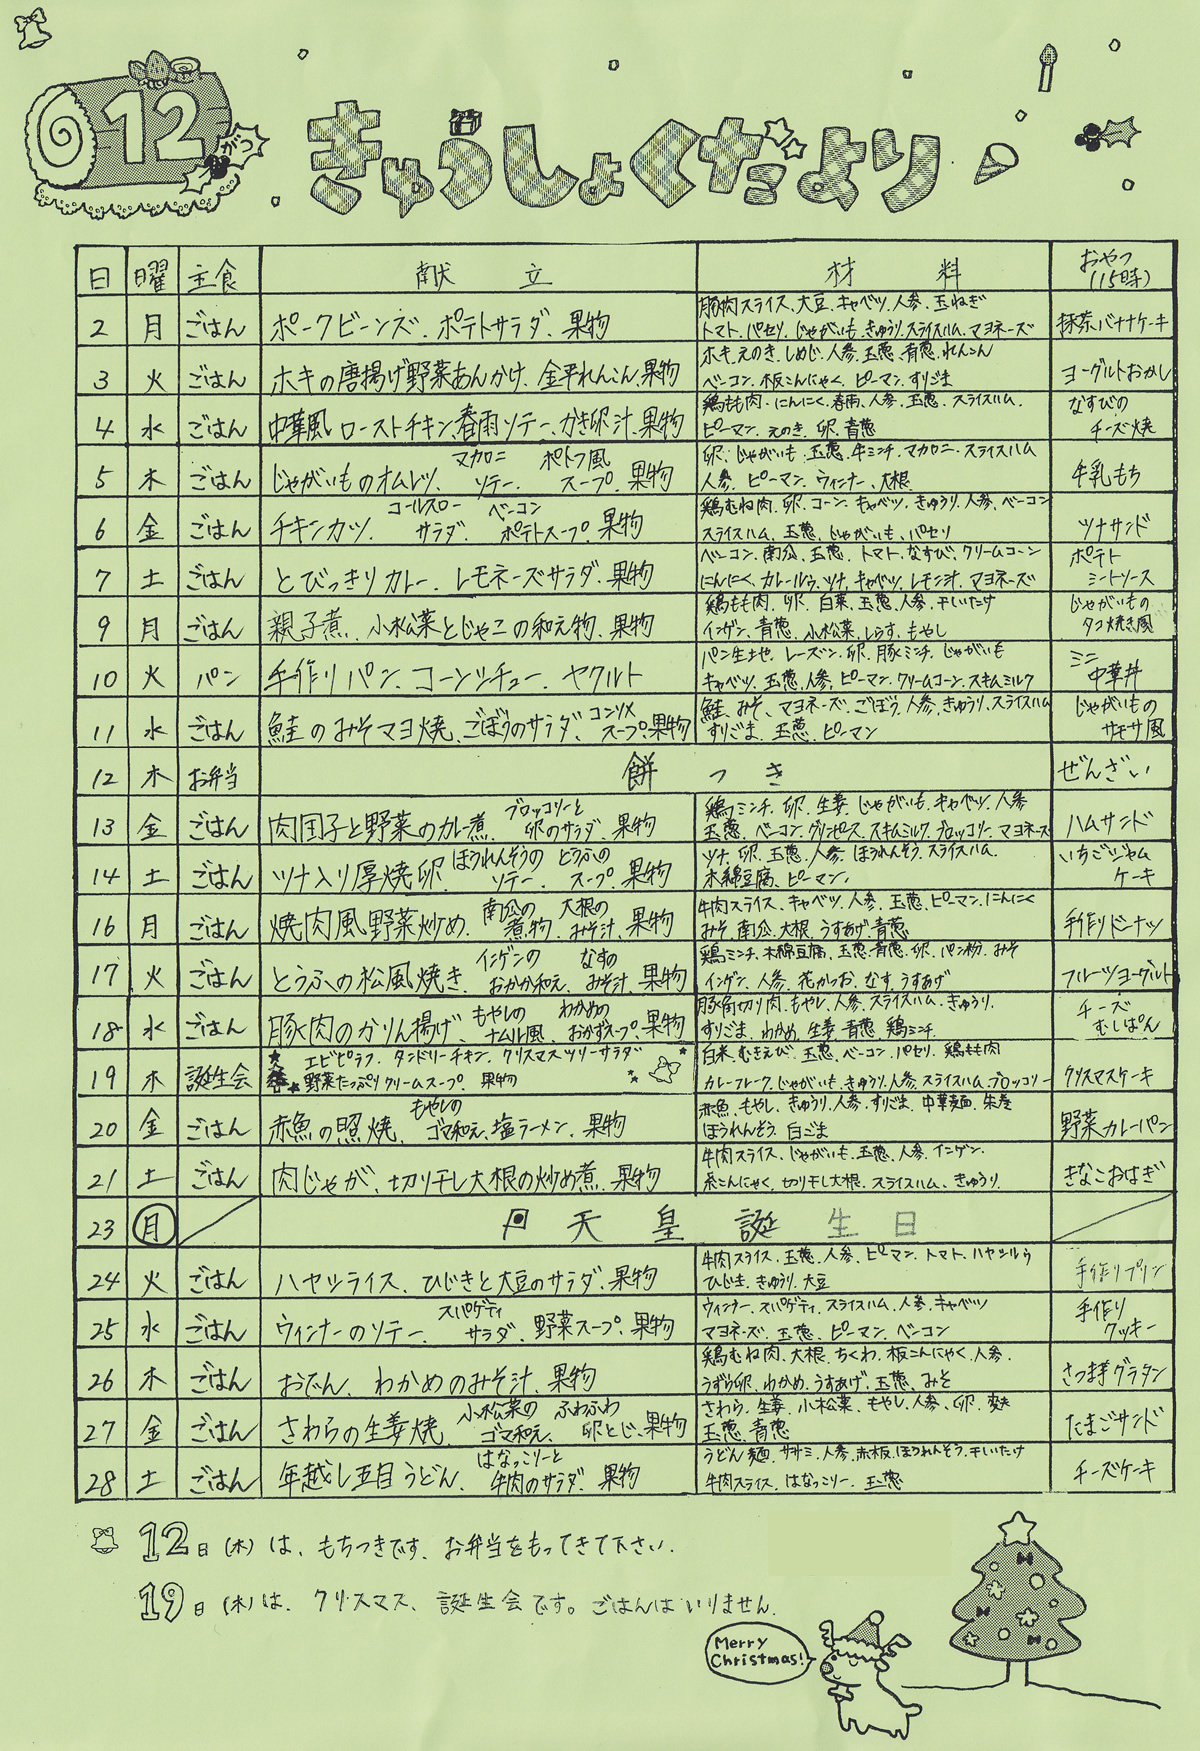 12がつ
きゅうしょくだより
日 曜 主食 献立 材料 おやつ(15時)
2 月 ごはん ポークビーンズ、ポテトサラダ、果物 豚肉スライス、大豆、キャベツ、人参、玉ねぎ
トマト、パセリ、じゃがいも、きゅうり、スライスハム、マヨネーズ 抹茶バナナケーキ
3 火 ごはん ホキの唐揚げ野菜あんかけ、金平れんこん、果物 ホキ、えのき、しめじ、人参、玉葱、青葱、れんこん
ベーコン、板こんにゃく、ピーマン、すりごま ヨーグルトおかし
4 水 ごはん 中華風ローストチキン、春雨ソテー、かき卵汁、果物 鶏もも肉、にんにく、春雨、人参、玉葱、スライスハム、
ピーマン、えのき、卵、青葱 なすびのチーズ焼
5 木 ごはん じゃがいものオムレツ、マカロニソテー、ポトフ風スープ、果物 卵、じゃがいも、玉葱、牛ミンチ、マカロニ、スライスハム
人参、ピーマン、ウィンナー、大根 牛乳もち
6 金 ごはん チキンカツ、コールスローサラダ、ベーコンポテトスープ、果物 鶏むね肉、卵、コーン、キャベツ、きゅうり、人参、ベーコン
スライスハム、玉葱、じゃがいも、パセリ ツナサンド
7 土 ごはん とびっきりカレー、レモネーズサラダ、果物 ベーコン、南瓜、玉葱、トマト、なすび、クリームコーン
にんにく、カレールゥ、ツナ、キャベツ、レモン汁、マヨネーズ ポテトミートソース
9 月 ごはん 親子煮、小松菜とじゃこの和え物、果物 鶏もも肉、卵、白菜、玉葱、人参、干しいたけ
インゲン、青葱、小松菜、しらす、もやし じゃがいものタコ焼き風
10 火 パン 手作りパン、コーンシチュー、ヤクルト パン生地、レーズン、卵、豚ミンチ、じゃがいも
キャベツ、玉葱、人参、ピーマン、クリームコーン、スキムミルク ミニ中華丼
11 水 ごはん 鮭のみそマヨ焼、ごぼうのサラダ、コンソメスープ、果物 鮭、みそ、マヨネーズ、ごぼう、人参、きゅうり、スライスハム
すりごま、玉葱、ピーマン じゃがいものサモサ風
12 木 お弁当 餅つき ぜんざい
13 金 ごはん 肉団子と野菜のカレー煮、ブロッコリーと卵のサラダ、果物 鶏ミンチ、卵、生姜、じゃがいも、キャベツ、人参
玉葱、ベーコン、グリンピース、スキムミルク、ブロッコリー、マヨネーズ ハムサンド
14 土 ごはん ツナ入り厚焼卵、ほうれんそうのソテー、とうふのスープ、果物 ツナ、卵、玉葱、人参、ほうれんそう、スライスハム、
木綿豆腐、ピーマン、 いちごジャムケーキ
16 月 ごはん 焼肉風野菜炒め、南瓜の煮物、大根のみそ汁、果物 牛肉スライス、キャベツ、人参、玉葱、ピーマン、にんにく
みそ、南瓜、大根、うすあげ、青葱 手作りドーナツ
17 火 ごはん とうふの松風焼き、インゲンのおかか和え、なすのみそ汁、果物 鶏ミンチ、木綿豆腐、玉葱、青葱、卵、パン粉、みそ
インゲン、人参、花かつお、なす、うすあげ フルーツヨーグルト
18 水 ごはん 豚肉のかりん揚げ、もやしのナムル風、わかめのおかずスープ、果物 豚角切り肉、もやし、人参、スライスハム、きゅうり、
すりごま、わかめ、生姜、青葱、鶏ミンチ、 チーズむしぱん
19 木 誕生会 エビピラフ、タンドリーチキン、クリスマスツリーサラダ
野菜たっぷりクリームスープ、果物 白米、むきえび、玉葱、ベーコン、パセリ、鶏もも肉
カレーフレーク、じゃがいも、きゅうり、人参、スライスハム、ブロッコリー クリスマスケーキ
20 金 ごはん 赤魚の照焼、もやしのゴマ和え、塩ラーメン、果物 赤魚、もやし、きゅうり、人参、すりごま、中華麺、朱巻
ほうれんそう、白ごま 野菜カレーパン
21 土 ごはん 肉じゃが、切り干し大根の炒め煮、果物 牛肉スライス、じゃがいも、玉葱、人参、インゲン、
糸こんにゃく、切り干し大根、スライスハム、きゅうり、 きなこおはぎ
23 月 天皇誕生日
24 火 ごはん ハヤシライス、ひじきと大豆のサラダ、果物 牛肉スライス、玉葱、人参、ピーマン、トマト、ハヤシルゥ
ひじき、きゅうり、大豆 手作りプリン
25 水 ごはん ウィンナーのソテー、スパゲティサラダ、野菜スープ、果物 ウィンナー、スパゲティ、スライスハム、人参、キャベツ
マヨネーズ、玉葱、ピーマン、ベーコン 手作りクッキー
26 木 ごはん おでん、わかめのみそ汁、果物 鶏むね肉、大根、ちくわ、板こんにゃく、人参、
うずら卵、わかめ、うすあげ、玉葱、みそ さつま芋グラタン
27 金 ごはん さわらの生姜焼、小松菜のゴマ和え、ふわふわ卵とじ、果物 さわら、生姜、小松菜、もやし、人参、卵、麩
玉葱、青葱 たまごサンド
28 土 ごはん 年越し五目うどん、はなっこりーと牛肉のサラダ、果物 うどん麺、ササミ、人参、赤板、ほうれんそう、干しいたけ
牛肉スライス、はなっこりー、玉葱 チーズケーキ
12日(木)は、もちつきです。お弁当をもってきて下さい。
19日(木)は、クリスマス、誕生会です。ごはんはいりません。
Merry
Christmas!